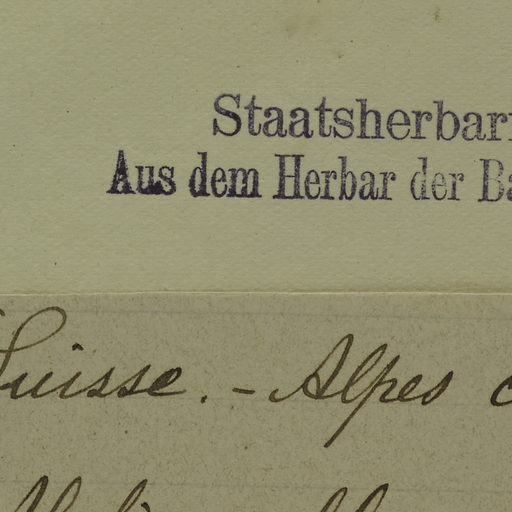 Staatsherbar
Aus dem Herbar der Ba
Suisse. - Alpes